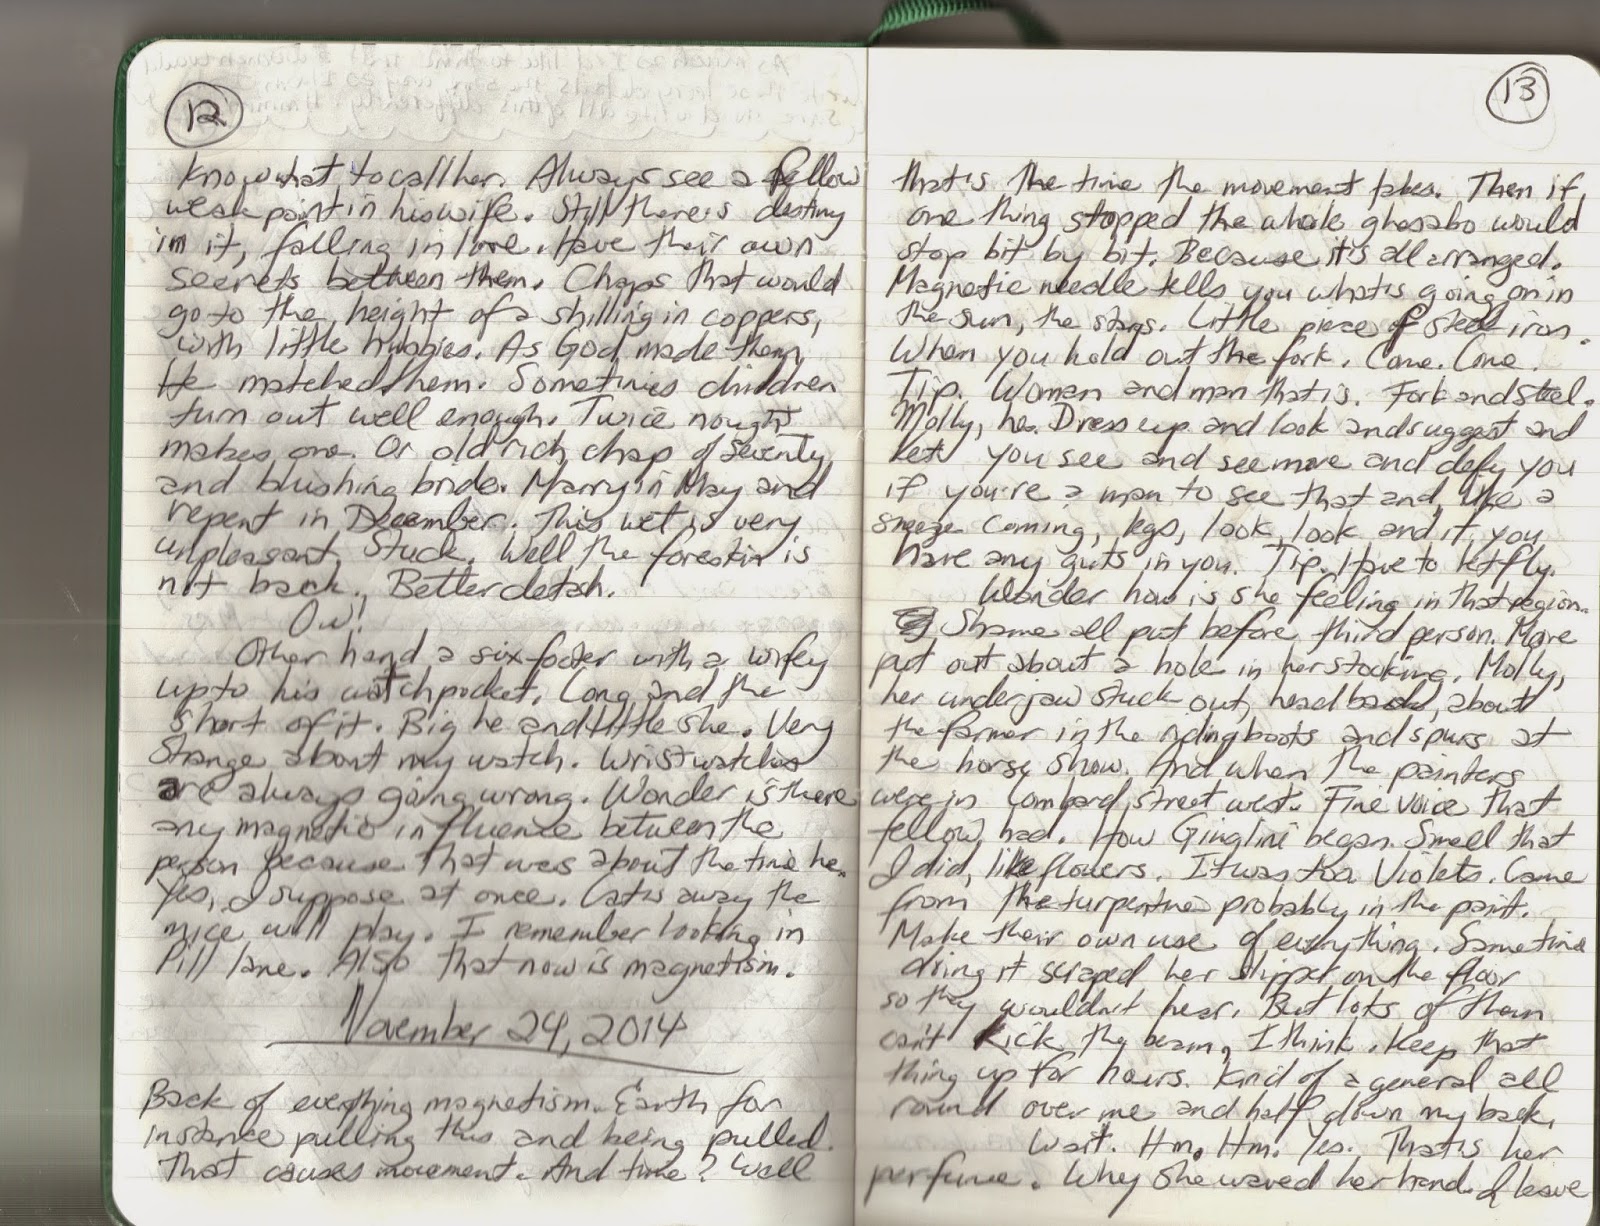 12
know what to call her. Always see a fellow
weak point in his wife. Still there is destiny
in it, falling in love. Have their own
secrets between them. Chaps that would
go to the height of a shilling in coppers,
with little hubbies. As God made them
He matched them. Sometimes children
turn out well enough. Twice nought
makes one. Or old rich chap of seventy
and blushing bride. Marry in May and
repent in December. This wet is very
unpleasant. Stuck. Well the foreskin is
not back. Better detach.
Ow!
Other hand a sixfooter with a wifey
up to his watchpocket. Long and the
short of it. Big he and little she. Very
strange about my watch. Wristwatches
are always going wrong. Wonder is there
any magnetic influence between the
person because that was about the time he.
Yes, I suppose at once. Cat's away the
mice will play. I remember looking in
Pill lane. Also that now is magnetism.
November 24, 2014
Back of everything magnetism. Earth for
instance pulling this and being pulled.
That causes movement. And time? Well
13
that's the time the movement takes. Then if
one thing stopped the whole ghesabo would
stop bit by bit. Because it's all arranged.
Magnetic needle tells you what's going on in
the sun, the stars. Little piece of steel iron.
When you hold out the fork. Come. Come.
Tip. Woman and man that is. Fork and steel.
Molly, he. Dress up and look and suggest and
let you see and see more and defy you
if you're a man to see that and, like a
sneeze coming, legs, look, look and if you
have any guts in you. Tip. Have to let fly.
Wonder how is she feeling in that region.
Shame all put before third person. More
put out about a hole in her stocking. Molly,
her underjaw stuck out, head back, about
the farmer in the ridingboots and spurs at
the horse show. And when the painters
were in Lombard street west. Fine voice that
fellow had. How Giuglini began. Smell that
I did, like flowers. It was too. Violets. Came
from the turpentine probably in the paint.
Make their own use of everything. Sametime
doing it scraped her slipper on the floor
so they wouldn't hear. But lots of them
can't kick the beam, I think. Keep that
thing up for hours. Kind of a general all
round over me and half down my back.
Wait. Hm. Hm. Yes. That's her
perfume. Why she waved her hand. I leave